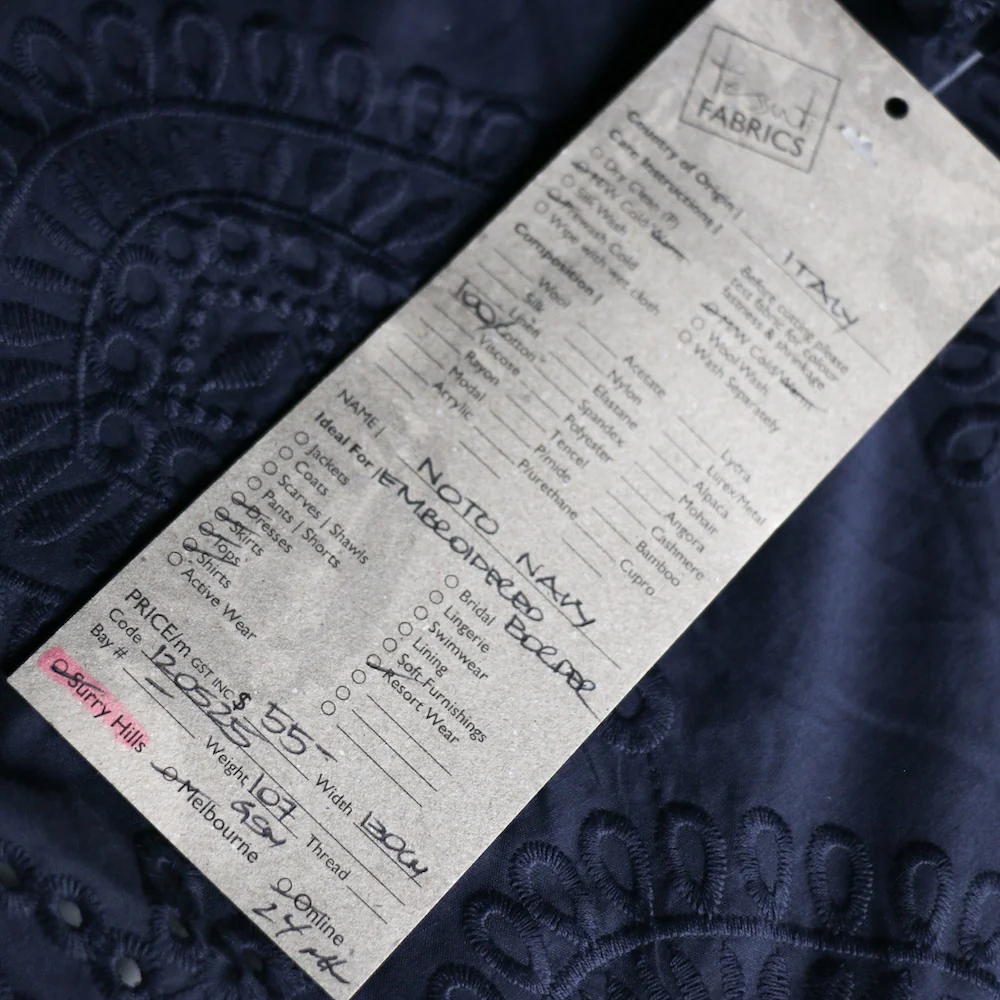 tessuti
FABRICS
Country of Origin | ITALY
Care Instructions |
Dry Clean (P)
MW Cold/Warm
Silk Wash
Prewash Cold
Wipe with wet cloth
Before cutting please
test fabric for colour
fastness & shrinkage
MW Cold/Warm
Wool Wash
Wash Separately
Composition |
Wool
Silk
Linen
100% Cotton
Viscose
Rayon
Modal
Acrylic
Acetate
Nylon
Elastane
Spandex
Polyester
Tencel
Pimide
Plurethane
Lycra
Lurex/Metal
Alpaca
Mohair
Angora
Cashmere
Bamboo
Cupro
NAME | NOTO NAVY
EMBROIDERED BORDER
Ideal For |
Jackets
Coats
Scarves | Shawls
Pants | Shorts
Dresses
Skirts
Tops
Shirts
Active Wear
Bridal
Lingerie
Swimwear
Lining
Soft Furnishings
Resort Wear
PRICE/m GST INC $ 55-
Code 120525 Width 130CM
Bay # Weight 107 GSM Thread
Surry Hills Melbourne Online
24